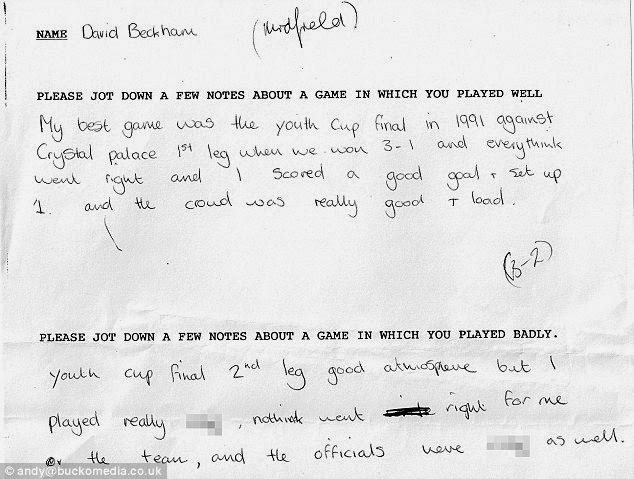 NAME David Beckham (Midfield)
PLEASE JOT DOWN A FEW NOTES ABOUT A GAME IN WHICH YOU PLAYED WELL
My best game was the youth Cup final in 1991 against
Crystal palace 1st leg when we won 3-1 and everythink
went right and I Scored a good goal + set up
1. and the croud was really good + load.
(3-2)
PLEASE JOT DOWN A FEW NOTES ABOUT A GAME IN WHICH YOU PLAYED BADLY.
youth cup final 2nd leg good atmospere but I
played really , nothink went right for me
or the team, and the officials were as well.
© andy@buckomedia.co.uk